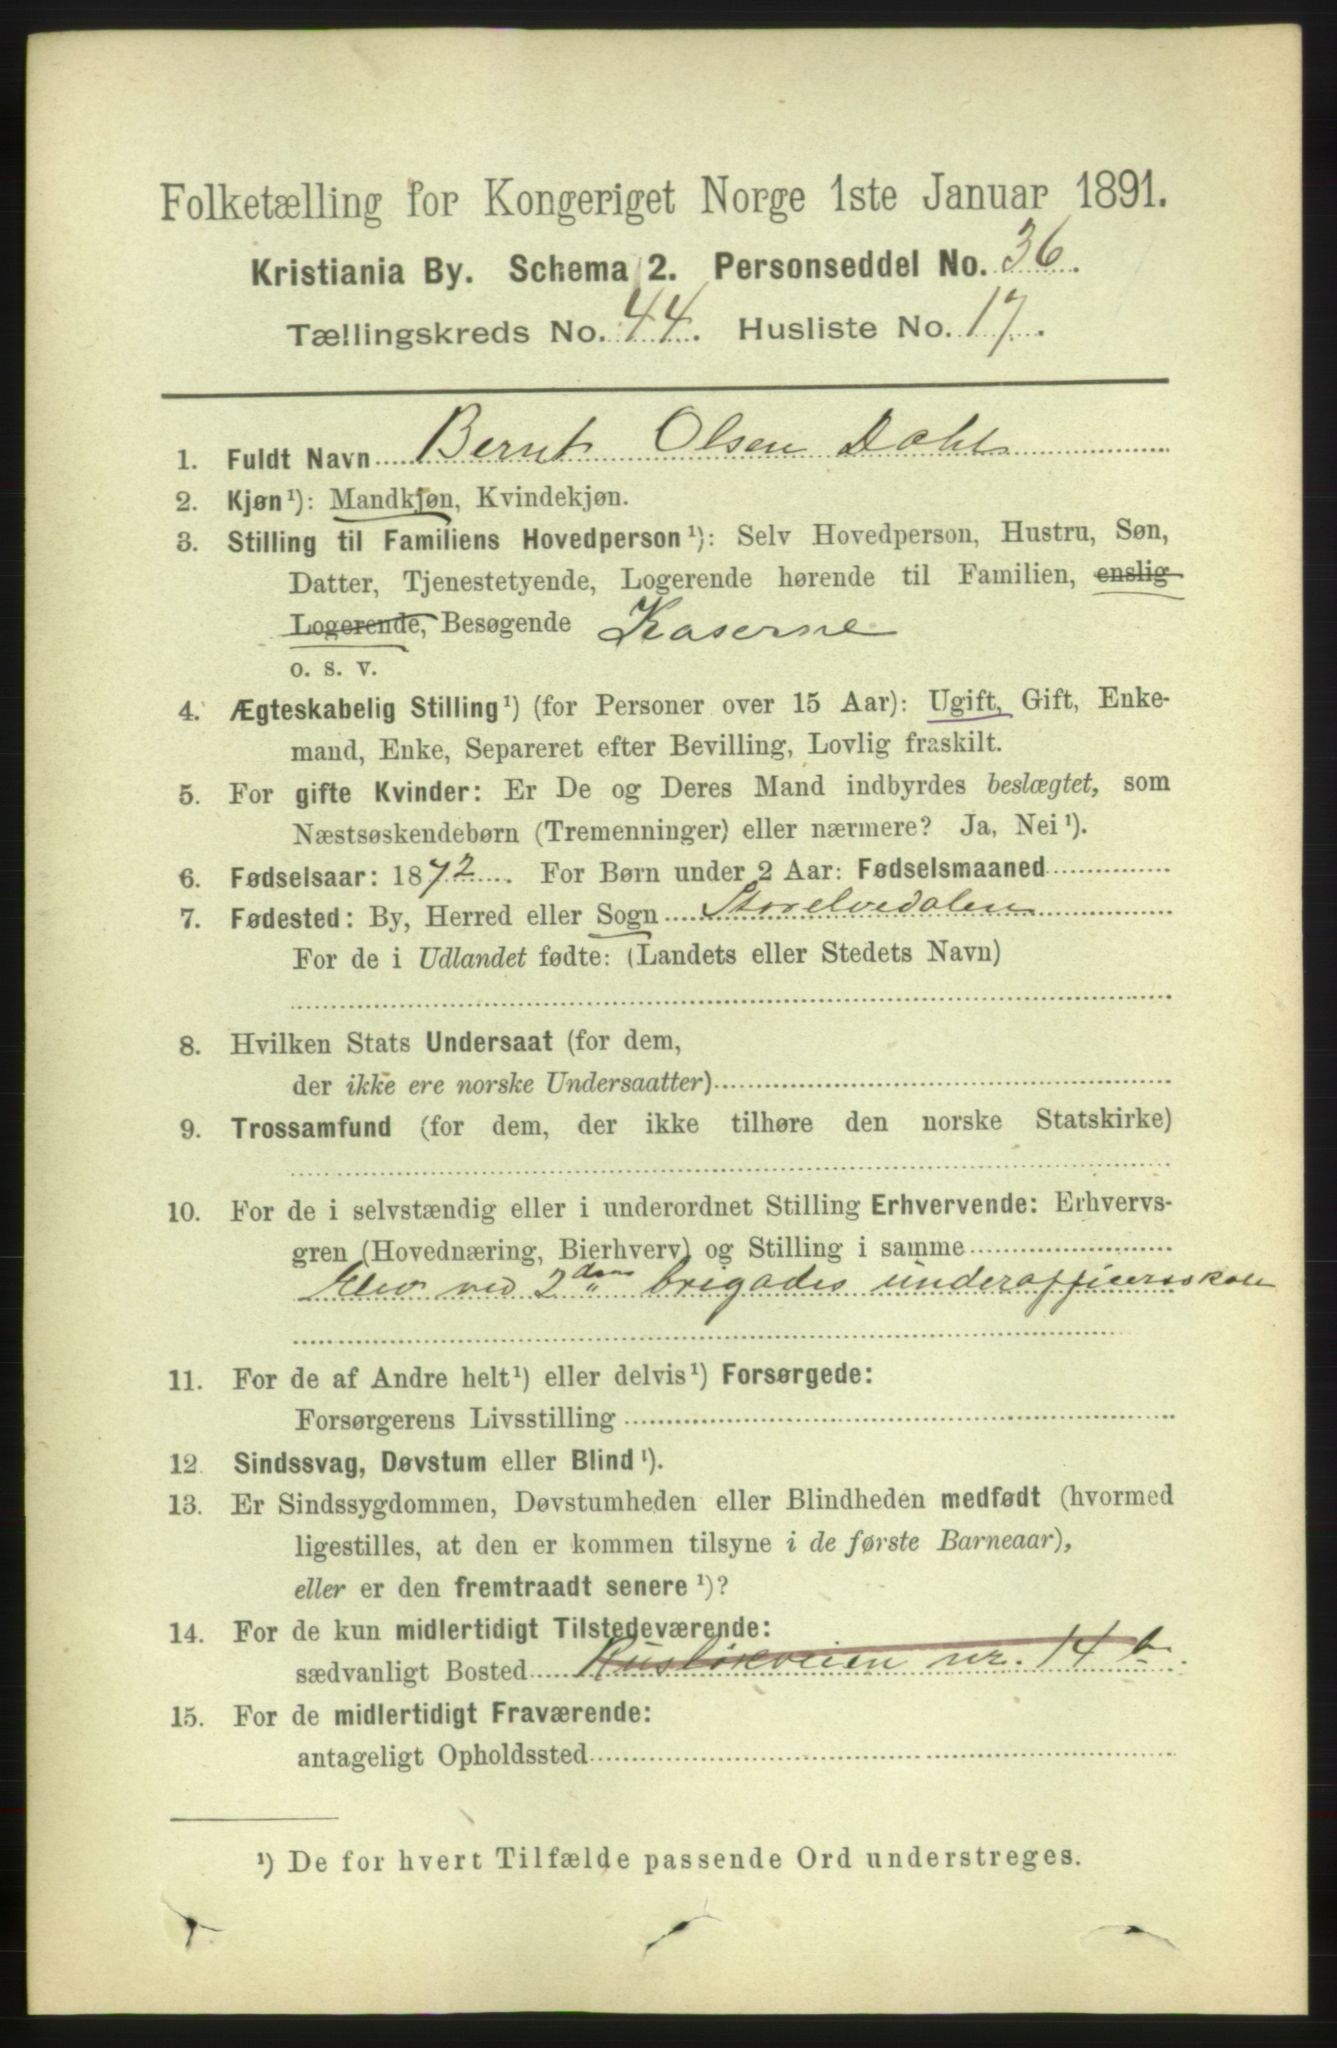 Folketælling for Kongeriget Norge 1ste Januar 1891.
Kristiania By. Schema 2. Personseddel No. 36.
Tællingskreds No. 44. Husliste No. 17.
1. Fuldt Navn Bernt Olsen Dahl
2. Kjøn¹): Mandkjøn, Kvindekjøn.
3. Stilling til Familiens Hovedperson¹): Selv Hovedperson, Hustru, Søn,
Datter, Tjenestetyende, Logerende hørende til Familien, enslig
Logerende, Besøgende Kaserne
o. s. v.
4. Ægteskabelig Stilling¹) (for Personer over 15 Aar): Ugift, Gift, Enke-
mand, Enke, Separeret efter Bevilling, Lovlig fraskilt.
5. For gifte Kvinder: Er De og Deres Mand indbyrdes beslægtet, som
Næstsøskendebørn (Tremenninger) eller nærmere? Ja, Nei¹).
6. Fødselsaar: 1872. For Børn under 2 Aar: Fødselsmaaned
7. Fødested: By, Herred eller Sogn Storelvedalen
For de i Udlandet fødte: (Landets eller Stedets Navn)
8. Hvilken Stats Undersaat (for dem,
der ikke ere norske Undersaatter)
9. Trossamfund (for dem, der ikke tilhøre den norske Statskirke)
10. For de i selvstændig eller i underordnet Stilling Erhvervende: Erhvervs-
gren (Hovednæring, Bierhverv) og Stilling i samme
Elev ved 2den brigades underofficersskole
11. For de af Andre helt¹) eller delvis¹) Forsørgede:
Forsørgerens Livsstilling
12. Sindssvag, Døvstum eller Blind¹).
13. Er Sindssygdommen, Døvstumheden eller Blindheden medfødt (hvormed
ligestilles, at den er kommen tilsyne i de første Barneaar),
eller er den fremtraadt senere¹)?
14. For de kun midlertidigt Tilstedeværende:
sædvanligt Bosted Ruseløkveien nr. 14 b.
15. For de midlertidigt Fraværende:
antageligt Opholdssted
¹) De for hvert Tilfælde passende Ord understreges.